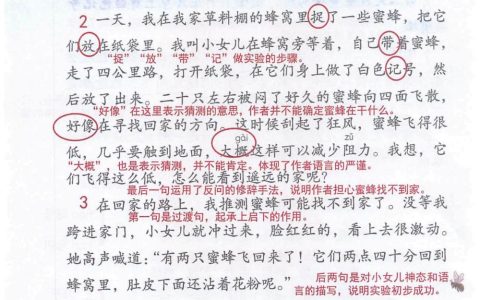 2 一天，我在我家草料棚的蜂窝里捉了一些蜜蜂，把它
们放在纸袋里。我叫小女儿在蜂窝旁等着，自己带着蜜蜂，
“捉”“放”“带”“记”做实验的步骤。
走了四公里路，打开纸袋，在它们身上做了白色记号，然
后放了出来。二十只左右被闷了好久的蜜蜂向四面飞散，
“好像”在这里表示猜测的意思，作者并不能确定蜜蜂在干什么。
好像在寻找回家的方向。这时候刮起了狂风，蜜蜂飞得很
gài zǔ
低，几乎要触到地面，大概这样可以减少阻力。我想，它
“大概”，也是表示猜测，并不能肯定。体现了作者语言的严谨。
们飞得这么低，怎么能看到遥远的家呢？
最后一句运用了反问的修辞手法，说明作者担心蜜蜂找不到家。
3 在回家的路上，我推测蜜蜂可能找不到家了。没等我
第一句是过渡句，起承上启下的作用。
跨进家门，小女儿就冲过来，脸红红的，看上去很激动。
她高声喊道：“有两只蜜蜂飞回来了！它们两点四十分回到
蜂窝里，肚皮下面还沾着花粉呢。”
后两句是对小女儿神态和语
言的描写，说明实验初步成功。